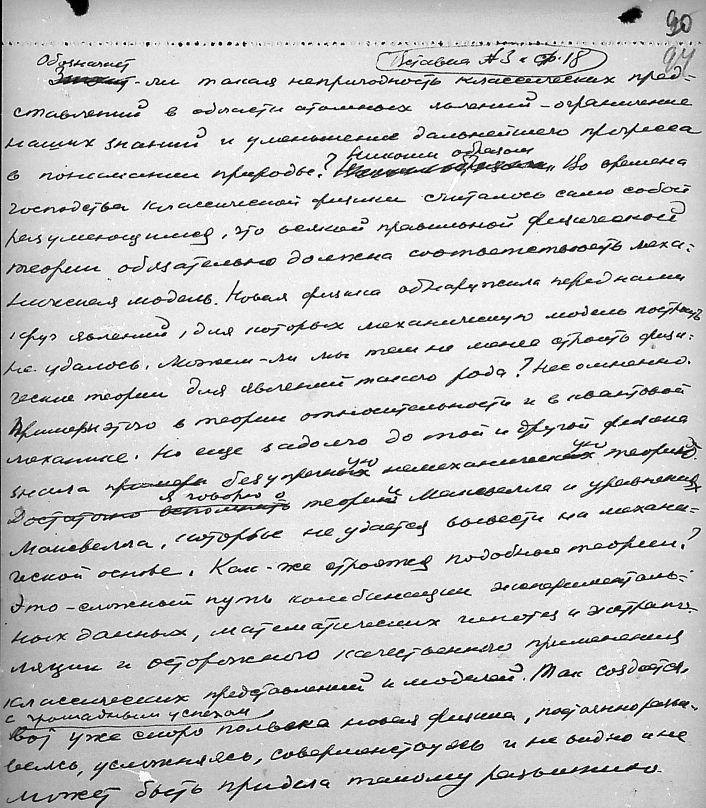 90
94
Вставка А3 к стр. 18
Обозначает
Значит-ли такая непригодность классических пред-
ставлений в области атомных явлений – ограничение
наших знаний и уменьшение дальнейшего прогресса
в понимании природы? Никоим образом. Во времена
господства классической физики считалось само собой
разумеющимся, что всякой правильной физической
теории обязательно должна соответствовать меха-
ническая модель. Новая физика обнаружила перед нами
круг явлений, для которых механическую модель построить
не удалось. Можем-ли мы тем не менее строить физи-
ческие теории для явлений такого рода? Несомненно.
Примеры этого в теории относительности и в квантовой
механике. Но еще задолго до той и другой физика
знала примеры безупречную немеханическую теорию.
Достаточно вспомнить я говорю о теории Максвелла и уравнениях
Максвелла, которые не удается вывести на механи-
ческой основе. Как-же строятся подобные теории?
Это – сложный путь комбинации эксперименталь-
ных данных, математических гипотез и экстрапо-
ляции и осторожного качественного применения
классических представлений и моделей. Так создается,
с громадным успехом
вот уже скоро полвека новая физика, постоянно разви-
ваясь, усложняясь, совершенствуясь и не видно и не
может быть предела такому развитию.